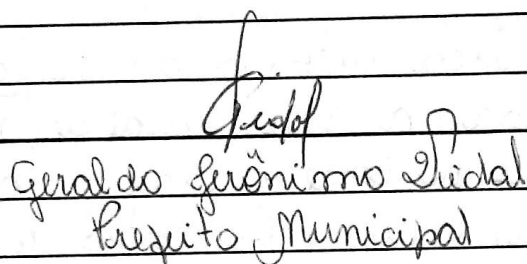 Vidal
Geraldo Jerônimo Vidal
Prefeito Municipal